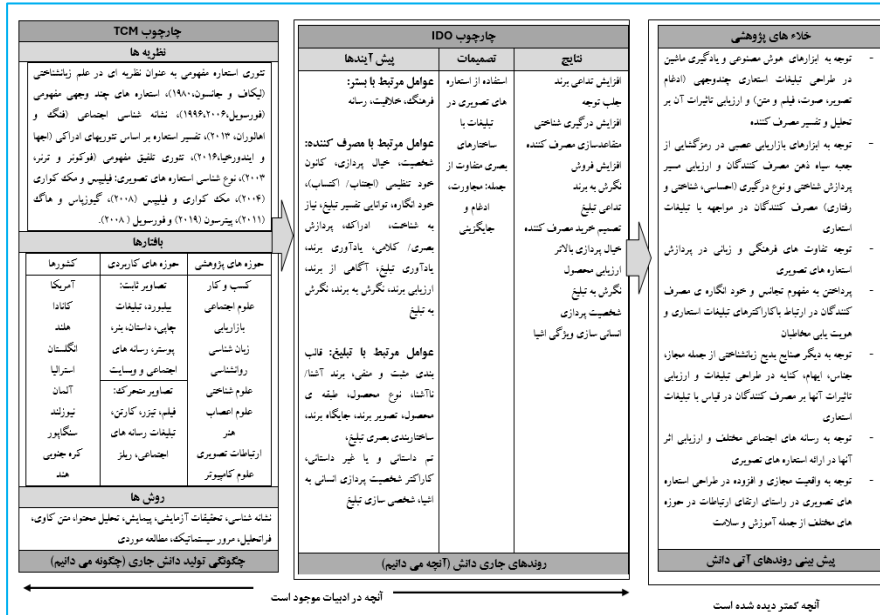 چارچوب TCM
نظریه ها
تئوری استعاره مفهومی به عنوان نظریه ای در علم زبانشناختی
(لیکاف و جانسون،۱۹۸۰)، استعاره های چند وجهی مفهومی
(فورسویل،۲۰۰۶،۱۹۹۶)، نشانه شناسی اجتماعی (فنگ و
اهالوران، ۲۰۱۳)، تفسیر استعاره بر اساس تئوریهای ادراکی (اجها
و ایندورخیا،۲۰۱۶)، تئوری تلفیق مفهومی (فوکونر و ترنر،
۲۰۰۳)، نوع شناسی استعاره های تصویری: فیلیپس و مک کواری
(۲۰۰۴)، مک کواری و فیلیپس (۲۰۰۸)، گیوزپاس و هاگ
(۲۰۱۱)، پیترسون (۲۰۱۹) و فورسویل (۲۰۰۸).
بافتارها
حوزه های پژوهشی
کسب و کار
علوم اجتماعی
بازاریابی
زبان شناسی
روانشناسی
علوم شناختی
علوم اعصاب
هنر
ارتباطات تصویری
علوم کامپیوتر
حوزه های کاربردی
تصاویر ثابت:
بیلبورد، تبلیغات
چاپی، داستان، بنر،
پوستر، رسانه های
اجتماعی و وبسایت
تصاویر متحرک:
فیلم، تیزر، کارتن،
تبلیغات رسانه های
اجتماعی، ریلز
کشورها
آمریکا
کانادا
هلند
انگلستان
استرالیا
آلمان
نیوزلند
سنگاپور
کره جنوبی
هند
روش ها
نشانه شناسی، تحقیقات آزمایشی، پیمایش، تحلیل محتوا، متن کاوی،
فراتحلیل، مرور سیستماتیک، مطالعه موردی
چگونگی تولید دانش جاری (چگونه می دانیم)
چارچوب IDO
پیش آیندها
عوامل مرتبط با بستر:
فرهنگ، خلاقیت، رسانه
عوامل مرتبط با مصرف کننده:
شخصیت، خیال پردازی، کانون
خود تنظیمی (اجتناب/ اکتساب)،
خود انگاره، توانایی تفسیر تبلیغ، نیاز
به شناخت، ادراک، پردازش
بصری/ کلامی، یادآوری برند،
یادآوری تبلیغ، آگاهی از برند،
ارزیابی برند، نگرش به برند، نگرش
به تبلیغ
عوامل مرتبط با تبلیغ: قالب
بندی مثبت و منفی، برند آشنا/
ناآشنا، نوع محصول، طبقه ی
محصول، تصویر برند، جایگاه برند،
ساختاربندی بصری تبلیغ،
تم داستانی و یا غیر داستانی،
کاراکتر شخصیت پردازی انسانی به
اشیا، شخصی سازی تبلیغ
تصمیمات
استفاده از استعاره
های تصویری در
تبلیغات با
ساختارهای
بصری متفاوت از
جمله: مجاورت،
ادغام و
جایگزینی
نتایج
افزایش تداعی برند
جلب توجه
افزایش درگیری شناختی
متقاعدسازی مصرف کننده
افزایش فروش
نگرش به برند
تداعی تبلیغ
تصمیم خرید مصرف کننده
خیال پردازی بالاتر
ارزیابی محصول
نگرش به تبلیغ
شخصیت پردازی
انسانی سازی ویژگی اشیا
روندهای جاری دانش (آنچه می دانیم)
خلاء های پژوهشی
- توجه به ابزارهای هوش مصنوعی و یادگیری ماشین
در طراحی تبلیغات استعاری چندوجهی (ادغام
تصویر، صوت، فیلم و متن) و ارزیابی تاثیرات آن بر
تحلیل و تفسیر مصرف کننده
- توجه به ابزارهای بازاریابی عصبی در رمزگشایی از
جعبه سیاه ذهن مصرف کنندگان و ارزیابی مسیر
پردازش شناختی و نوع درگیری (احساسی، شناختی و
رفتاری) مصرف کنندگان در مواجهه با تبلیغات
استعاری
- توجه تفاوت های فرهنگی و زبانی در پردازش
استعاره های تصویری
- پرداختن به مفهوم تجانس و خود انگاره ی مصرف
کنندگان در ارتباط باکاراکترهای تبلیغات استعاری و
هویت یابی مخاطبان
- توجه به دیگر صنایع بدیع زبانشناختی از جمله مجاز،
جناس، ایهام، کنایه در طراحی تبلیغات و ارزیابی
تاثیرات آنها بر مصرف کنندگان در قیاس با تبلیغات
استعاری
- توجه به رسانه های اجتماعی مختلف و ارزیابی اثر
آنها در ارائه استعاره های تصویری
- توجه به واقعیت مجازی و افزوده در طراحی استعاره
های تصویری در راستای ارتقای ارتباطات در حوزه
های مختلف از جمله آموزش و سلامت
پیش بینی روندهای آتی دانش
آنچه در ادبیات موجود است
آنچه کمتر دیده شده است